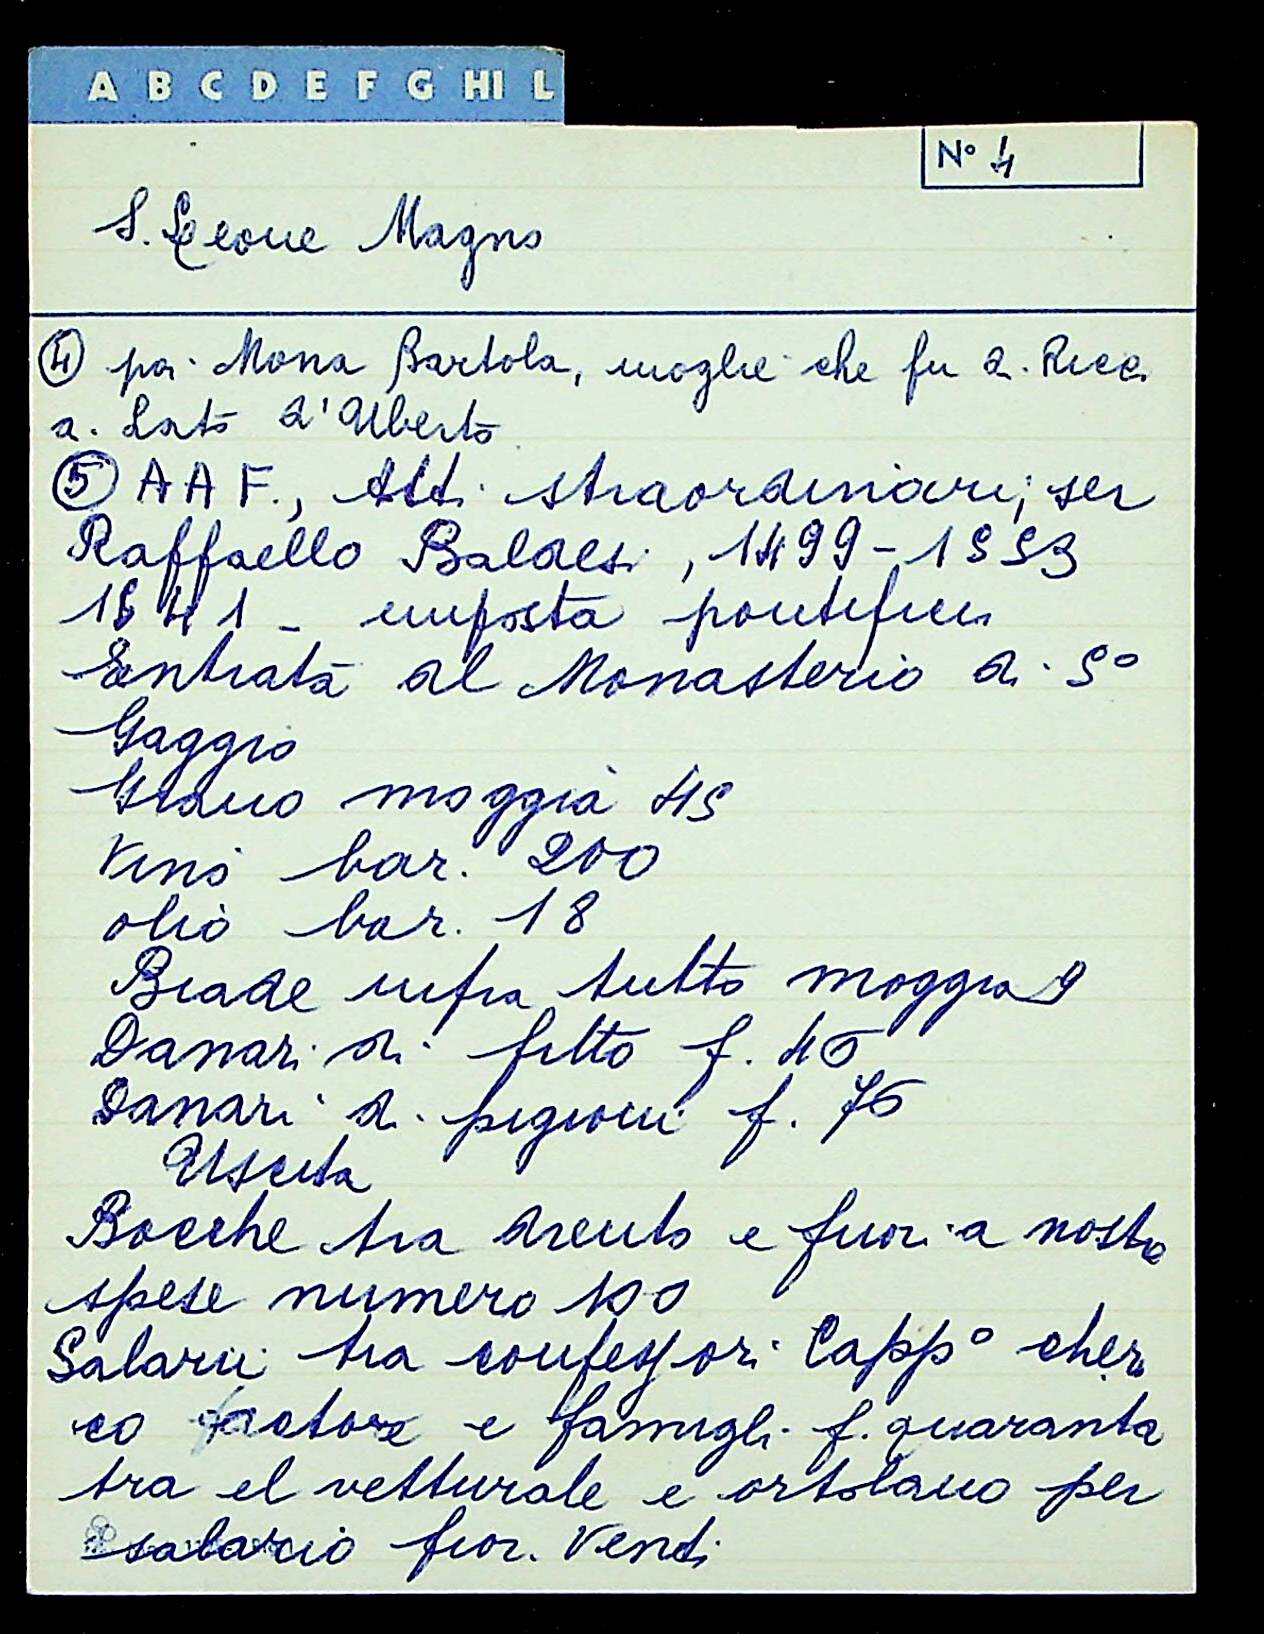 A B C D E F G HI L
N° 4
S. Leone Magno
④ poi Mona Bartola, moglie che fu di Ricc.
di Loto d'Uberto
⑤ A A F., Atti straordinari; ser
Raffaello Baldesi, 1499-1553
1541 - imposta pontificia
Entrata del Monasterio di S°
Gaggio
Grano moggia 45
Vino bar. 200
olio bar. 18
Biade infra tutto moggia 9
Danari di fitto f. 40
Danari di pigioni f. 70
Uscita
Bocche tra drento e fuori a nostre
spese numero 100
Salarii tra confessori Capp° cher
co factore e famigli f. quaranta
tra el vetturale e ortolano per
salario fior. Venti